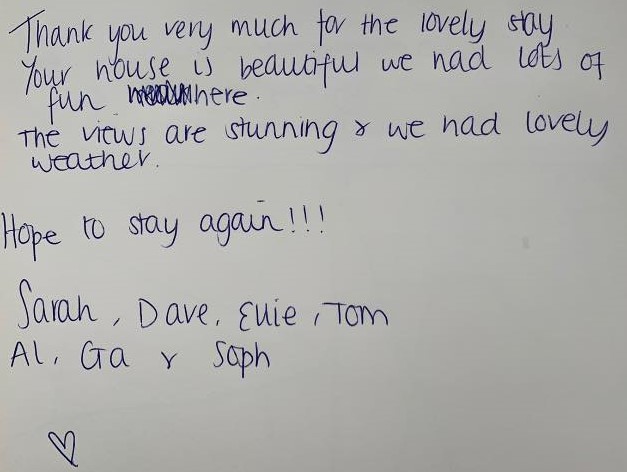 Thank you very much for the lovely stay
Your house is beautiful we had lots of
fun here.
The views are stunning & we had lovely
weather.
Hope to stay again!!!
Sarah, Dave, Evie, Tom
Al, Ga & Soph